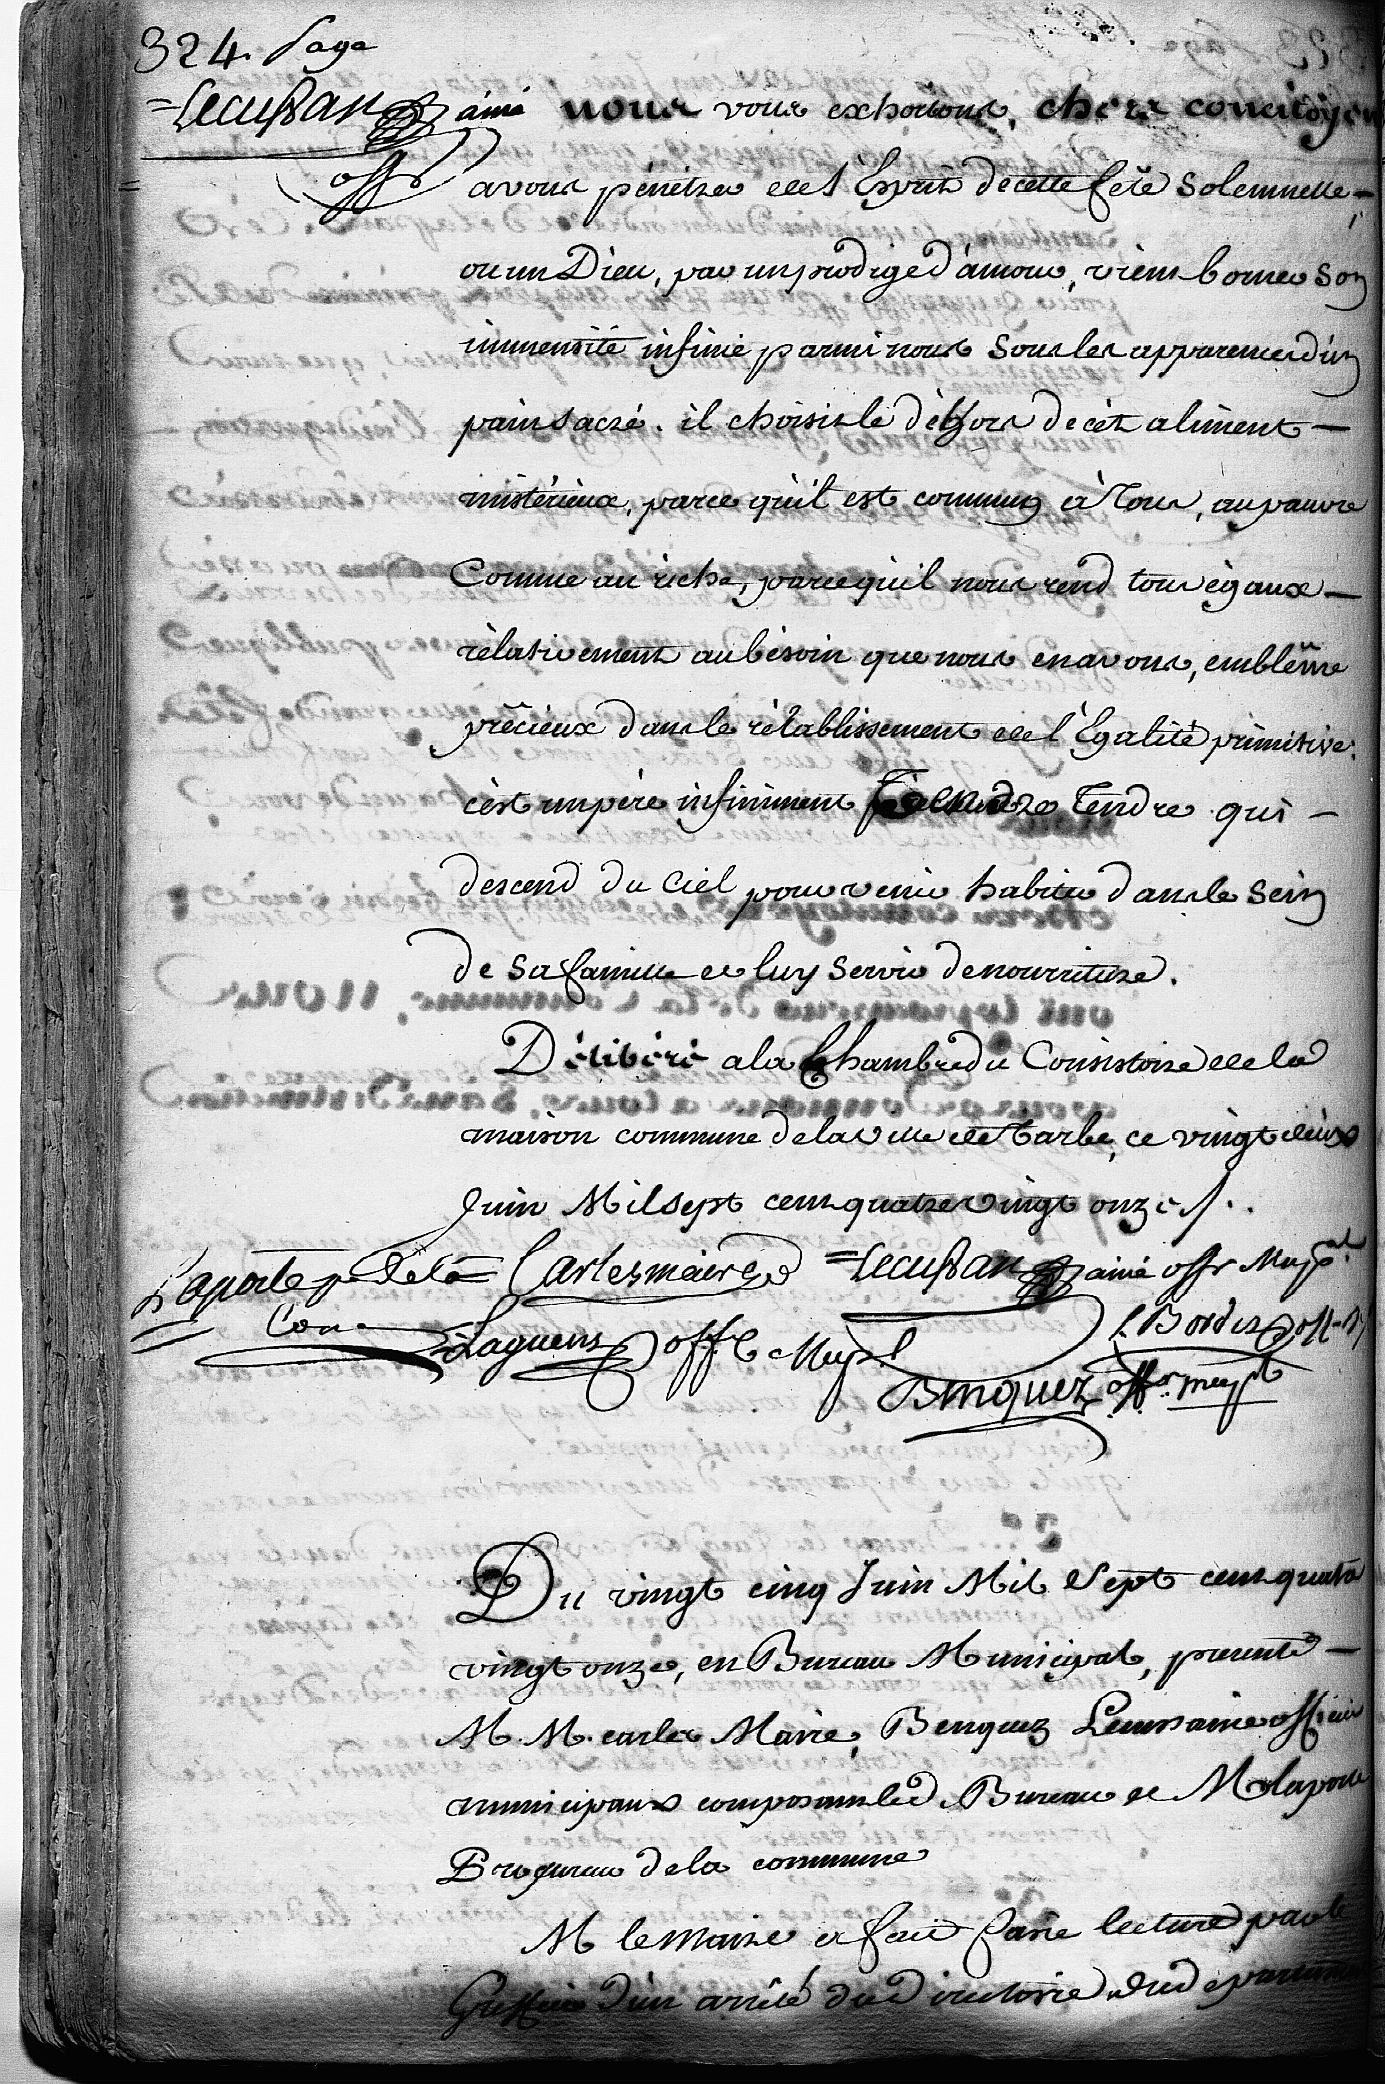 324. Page
=Lecussan ainé
offr
nous vous exhortons, chers concitoyens
a vous pénétrer de l'Esprit de cette fête solemnelle –
ou un Dieu, par un prodige d'amour, vient borner son
immensité infinie parmi nous sous les apparences d'un
pain sacré. il choisit le déhors de cèt aliment –
mistérieux, parce qu'il est commun à Tous, au pauvre
Comme au riche, parce qu'il nous rend tous égaux –
rélativement au bésoin que nous en avons, emblême
précieux dans le rétablissement de l'Egalité primitive.
c'est un père infiniment Tendre qui –
descend du Ciel pour venir habiter dans le Sein
de Sa famille et luy Servir de nourriture.
Délibéré a la Chambre du Consistoire de la
maison commune de la ville de Tarbe, ce vingt deux
Juin Mil sept cens quatre vingt onze /.
Laporte pr de la Carles maire =Lecussan ainé offr Mupal
Con Laguens offr Mupl Bordes off. M
Benquez offr mupl
Du vingt cinq Juin Mil Sept cens quatre
vingt onze, en Bureau Municipal, presents –
M. M. carles Maire, Benquez Lecussan ainé officiers
municipaux composans led. Bureau et M. laporte
Procureur de la commune
M le maire a fait faire lecture par le
Greffier d'un arrêté du Directoire du départem